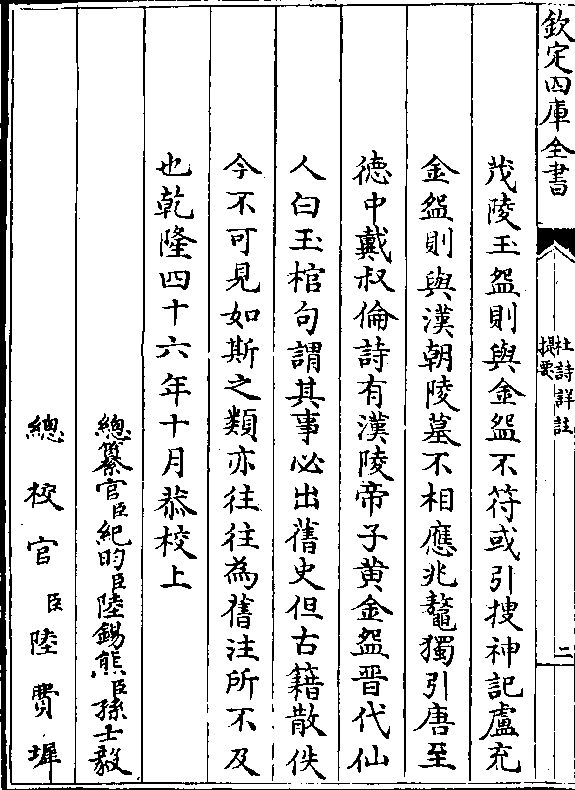 欽定四庫全書
杜詩詳註
提要
二
茂陵玉盌則與金盌不符或引搜神記盧充
金盌則與漢朝陵墓不相應兆鼇獨引唐至
德中戴叔倫詩有漢陵帝子黄金盌晋代仙
人白玉棺句謂其事必出舊史但古籍散佚
今不可見如斯之類亦往往為舊注所不及
也乾隆四十六年十月恭校上
總纂官臣紀昀臣陸錫熊臣孫士毅
總校官臣陸費墀